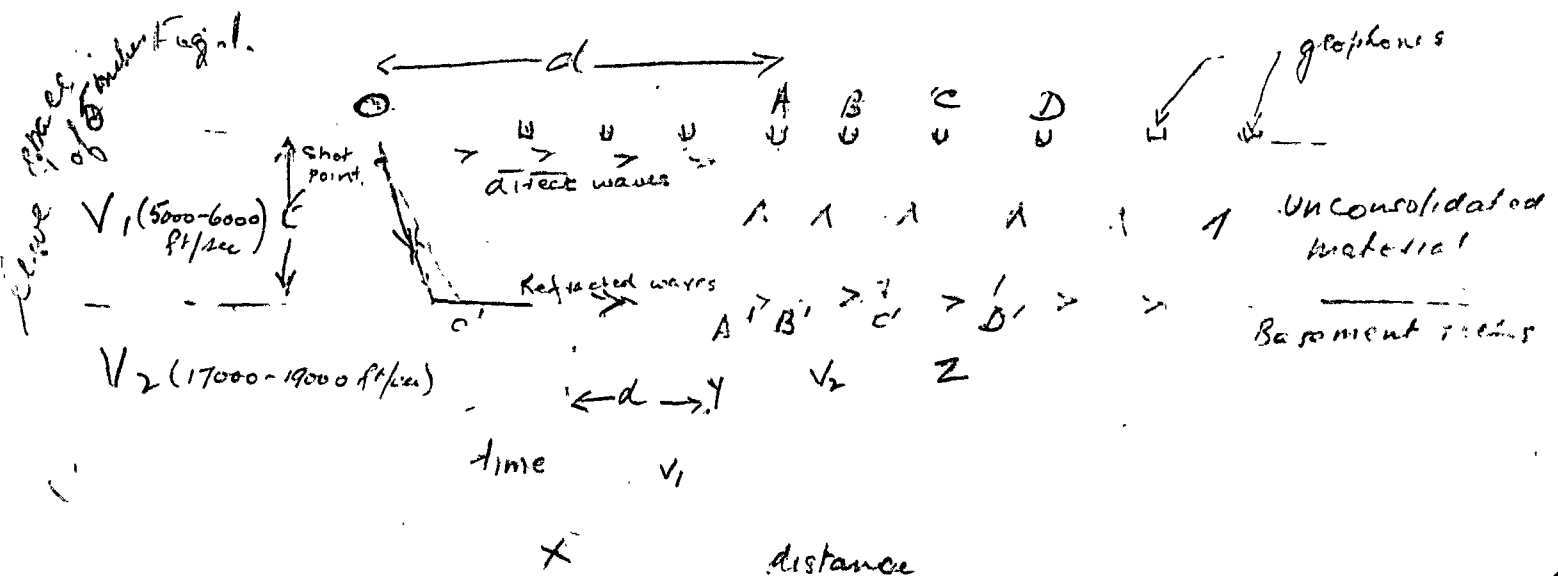 Fig. 1.
space
of
inches
d
geophones
O A B C D
Shot
Point.
direct waves
V1 (5000-6000)
ft/sec
Unconsolidated
material
Refracted waves
O' A' B' C' D'
Basement
V2 (17000-19000 ft/sec)
d Y V2 Z
time V1
X distance